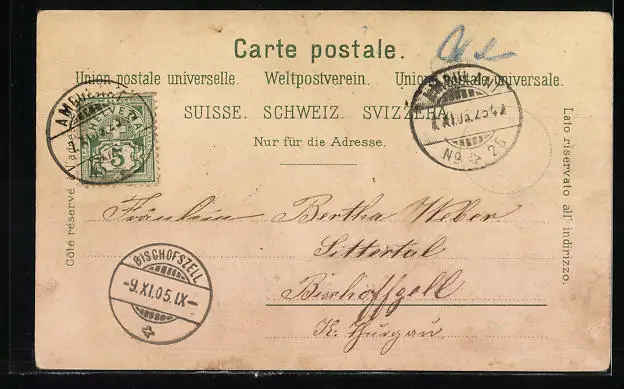 Carte postale.
Union postale universelle. Weltpostverein. Unione postale universale.
SUISSE. SCHWEIZ. SVIZZERA.
Nur für die Adresse.
Côté réservé
Lato riservato all' indirizzo.
HELVETIA
5
AMBULANT
XI.05
No 26
Fräulein Bertha Weber
Sittertal
Bischoffzell
K. Thurgau
BISCHOFSZELL
-9.XI.05.IX-